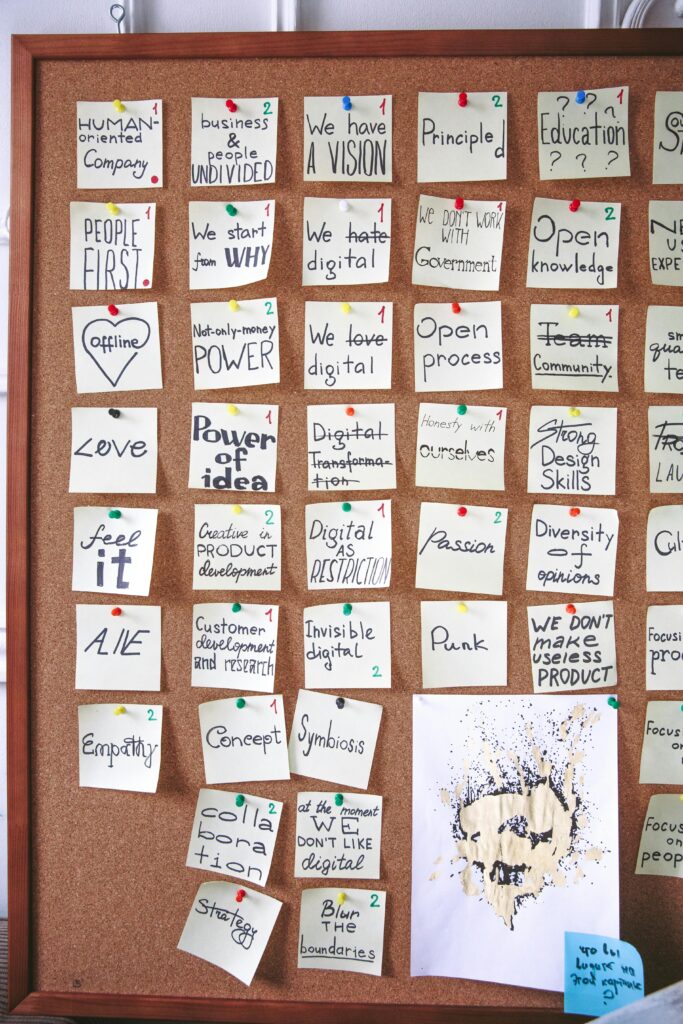 1
HUMAN-
oriented
Company
2
business
&
people
UNDIVIDED
1
We have
A VISION
2
Principled
1
? ? ?
Education
? ? ?
1
PEOPLE
FIRST
1
We start
from WHY
1
We hate
digital
1
WE DON'T WORK
WITH
Government
2
Open
knowledge
offline
2
Not-only-money
POWER
1
We love
digital
Open
process
1
Team
Community
Love
1
Power
of
idea
Digital
Transforma-
tion
1
Honesty with
ourselves
Strong
Design
Skills
feel
it
2
Creative in
PRODUCT
development
1
Digital
AS
RESTRICTION
2
Passion
Diversity
of
opinions
ALIE
1
Customer
development
and research
Invisible
digital
2
Punk
WE DON'T
make
useless
PRODUCT
Focusi
pro
2
Empathy
1
Concept
Symbiosis
Focus
on
2
colla
bora
tion
at the moment
WE
DON'T LIKE
digital
Focus
on
people
Strategy
2
Blur
THE
boundaries
видишь на
этой картине